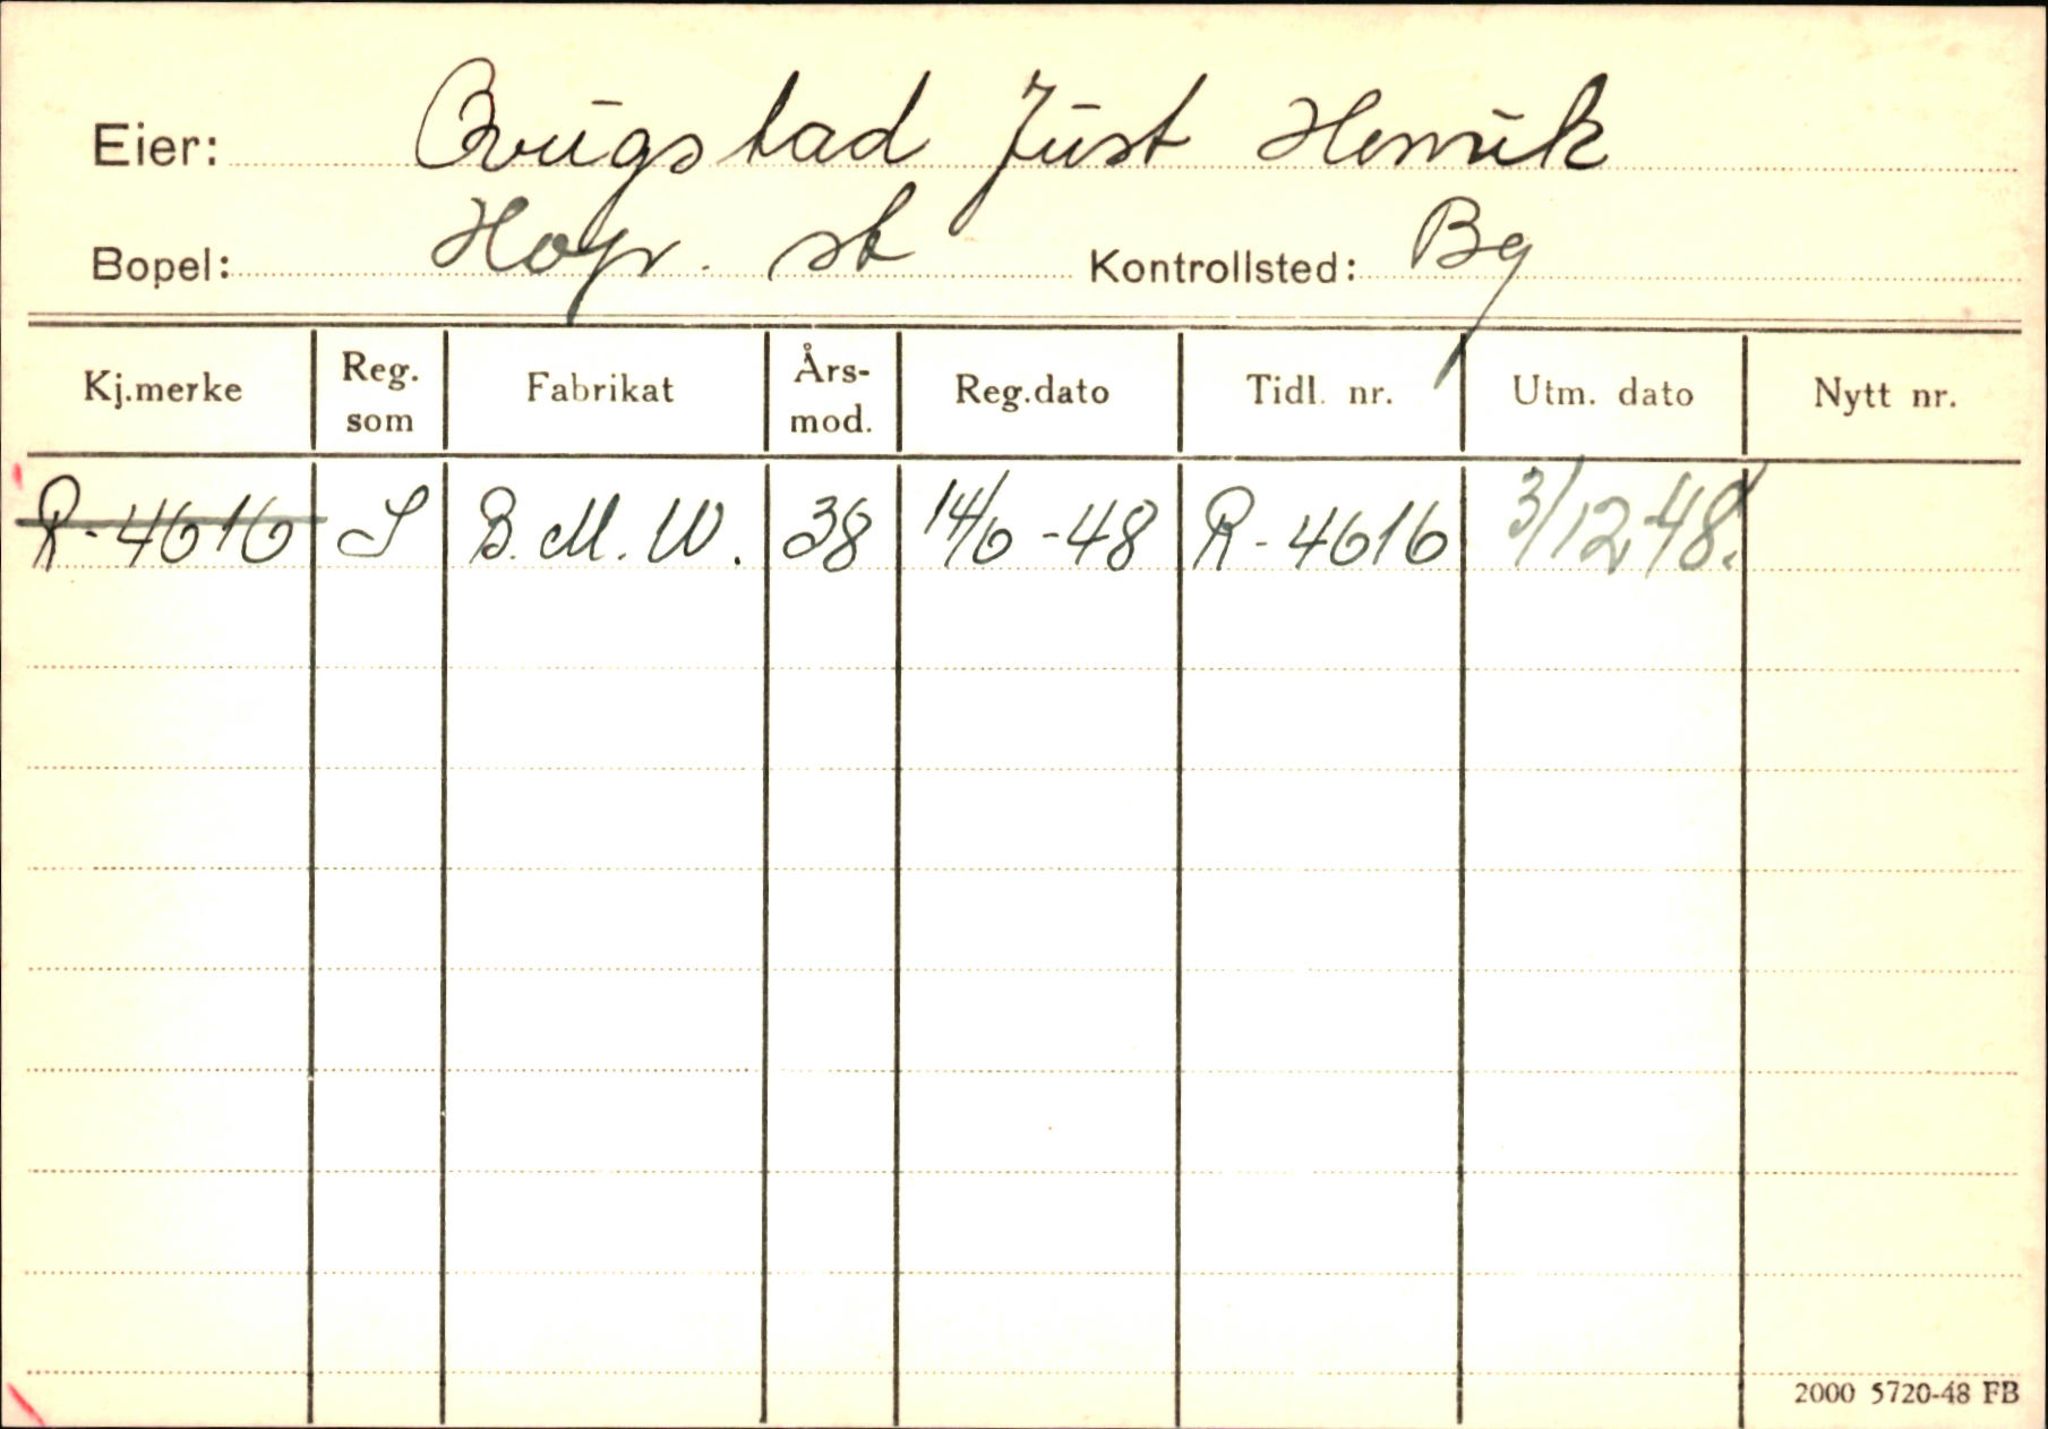 Eier: Brugstad Just Henrik
Bopel: Hop st Kontrollsted: Bg
Kj.merke Reg. som Fabrikat Års-mod. Reg.dato Tidl. nr. Utm. dato Nytt nr.
R-4616 S B.M.W. 38 14/6-48 R-4616 3/12-48.
2000 5720-48 FB